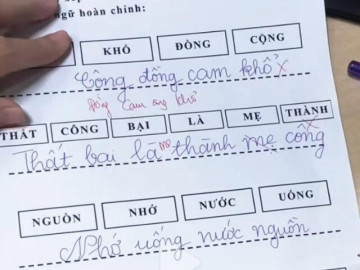 ngữ hoàn chỉnh:
KHÓ ĐỒNG CỘNG
Cộng đồng cam khổ x
Đồng cam cộng khổ
THẤT CÔNG BẠI LÀ MẸ THÀNH
Thất bại là mẹ thành mẹ công
NGUỒN NHỚ NƯỚC UỐNG
Nhớ uống nước nguồn